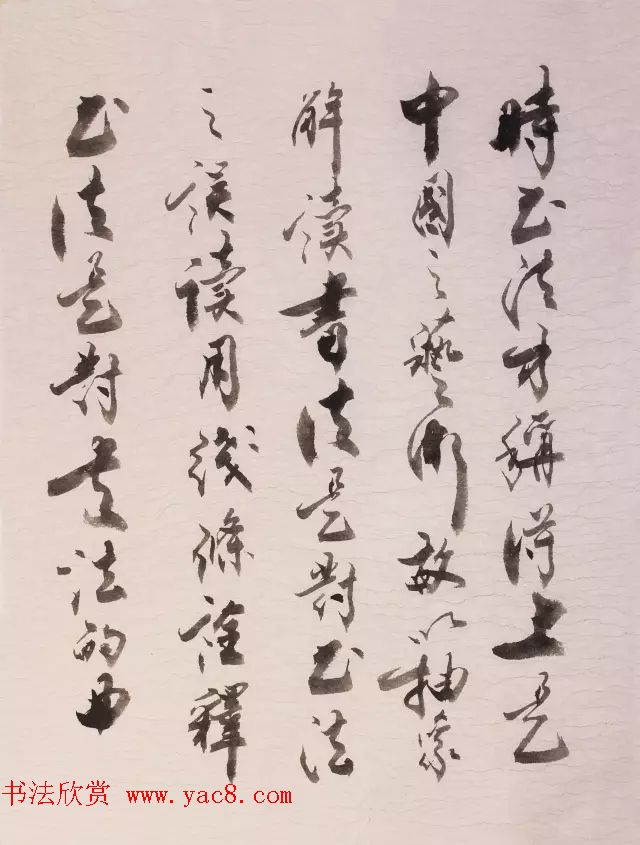 時书法才稱得上是
中國之藝術故以抽象
解读書法是對书法
之误读用线條詮釋
书法是對书法的曲
书法欣赏 www.yac8.com